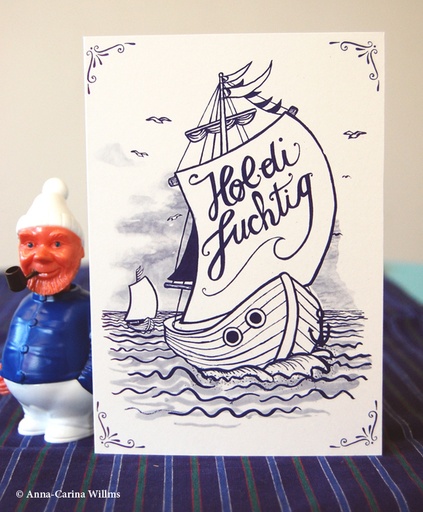 Hol di
fuchtig
© Anna-Carina Willms